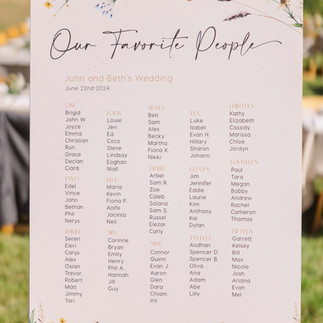 Our Favorite People
John and Beth's Wedding
June 22nd 2024
ONE
Brigid
John W.
Joyce
Emma
Christian
Ron
Grace
Declan
Ciara
TWO
Edel
Vince
John
Bethan
Phil
Nerys
THREE
Soren
Ellen
Carys
Alex
Osian
Trevor
Robert
Matt
Jimmy
Tori
FOUR
Louie
Jen
Ed
Coco
Steve
Lindsay
Eoghan
Niall
FIVE
Maria
Kevin
Fiona P.
Aoife
Jacinta
Neil
SIX
Corinne
Bryan
Emily
Henry
Phil A.
Hannah
Jill
Guy
SEVEN
Ben
Sam
Alex
Becky
Martha
Fiona K.
Nikki
EIGHT
Arbel
Sam R.
Zoe
Caleb
Solana
Sam S.
Russel
Elezar
Carly
NINE
Connor
Quin
Aaron
Glen
Dara
Chiam
TEN
Luke
Isabel
Evan H.
Hillary
Sharon
Johann
ELEVEN
Jim
Jennifer
Eddie
Laurie
Kim
Anthony
Kai
Dylan
TWELVE
Aodhan
Spencer D.
Spencer B.
Olivia
Ana
Adam
Abe
Lilly
THIRTEEN
Kathy
Elizabeth
Cassidy
Marissa
Chloe
Jordyn
FOURTEEN
Paul
Tara
Megan
Bobby
Andrew
Rachel
Cameron
Thomas
FIFTEEN
Garrett
Kelsey
Bill
Max
Nicole
Josh
Ariana
Evan
Mel